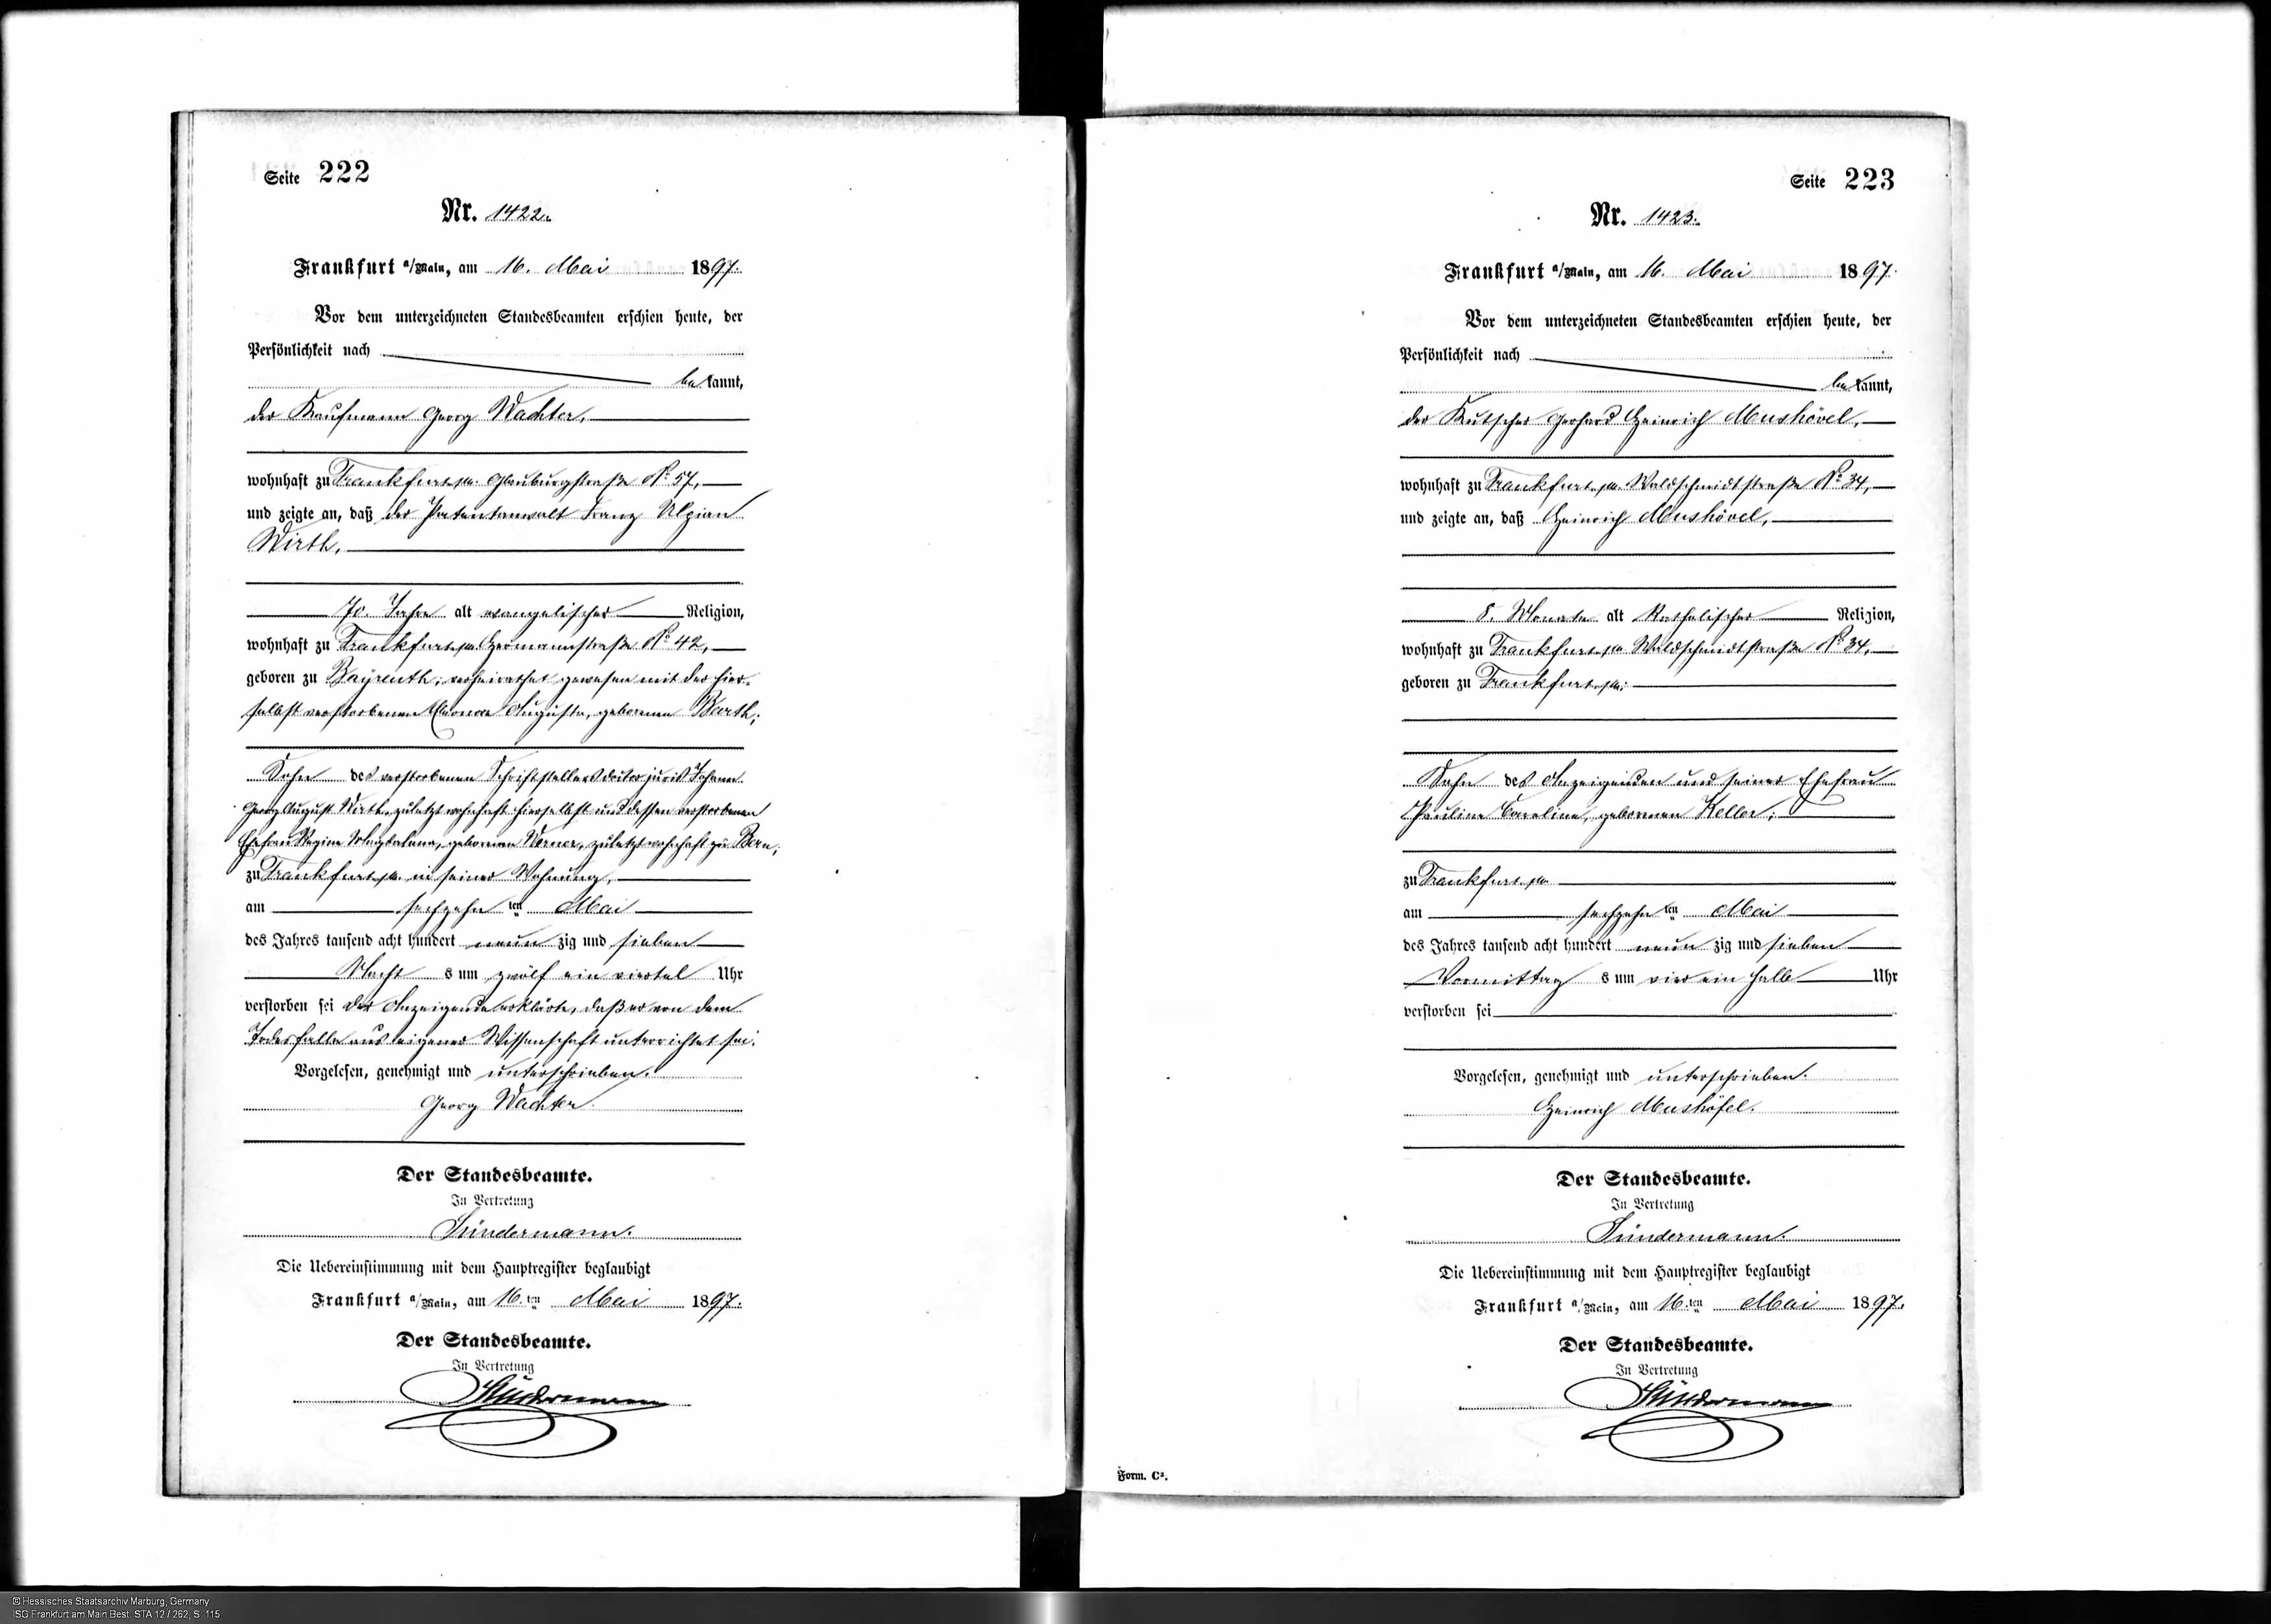 Seite 222
Nr. 1422.
Frankfurt a/Main, am 16. Mai 1897.
Vor dem unterzeichneten Standesbeamten erschien heute, der
Persönlichkeit nach
bekannt,
der Kaufmann Georg Wachter,
wohnhaft zu Frankfurt a/M. Glauburgstraße No 57,
und zeigte an, daß der Patentanwalt Franz Ulpian
Wirth,
70. Jahre alt evangelischer Religion,
wohnhaft zu Frankfurt a/M. Hermannstraße No 42,
geboren zu Bayreuth; verheirathet gewesen mit der hier-
selbst verstorbenen Auguste, geborenen Barth;
Sohn des verstorbenen Schriftstellers doctor juris Johann
Georg August Wirth, zuletzt wohnhaft hierselbst und dessen verstorbenen
Ehefrau Regina Magdalena, geborenen Werner, zuletzt wohnhaft zu Bern;
zu Frankfurt a/M. in seiner Wohnung,
am sechzehn ten Mai
des Jahres tausend acht hundert neun zig und sieben
Nacht s um zwölf ein viertel Uhr
verstorben sei der Anzeigende erklärte, daß er von dem
Todesfalle aus eigener Wissenschaft unterrichtet sei.
Vorgelesen, genehmigt und unterschrieben.
Georg Wachter.
Der Standesbeamte.
In Vertretung
Sündermann.
Die Uebereinstimmung mit dem Hauptregister beglaubigt
Frankfurt a/Main, am 16.ten Mai 1897.
Der Standesbeamte.
In Vertretung
Sündermann
Seite 223
Nr. 1423.
Frankfurt a/Main, am 16. Mai 1897.
Vor dem unterzeichneten Standesbeamten erschien heute, der
Persönlichkeit nach
bekannt,
der Kutscher Gerhard Heinrich Mushövel,
wohnhaft zu Frankfurt a/M. Waldschmidtstraße No 34,
und zeigte an, daß Heinrich Mushövel,
8. Monate alt katholischer Religion,
wohnhaft zu Frankfurt a/M. Waldschmidtstraße No 34,
geboren zu Frankfurt a/M;
Sohn des Anzeigenden und seiner Ehefrau
Pauline Caroline, geborenen Keller;
zu Frankfurt a/M.
am sechzehn ten Mai
des Jahres tausend acht hundert neun zig und sieben
Vormittag s um vier ein halb Uhr
verstorben sei
Vorgelesen, genehmigt und unterschrieben.
Heinrich Mushöfel.
Der Standesbeamte.
In Vertretung
Sündermann.
Die Uebereinstimmung mit dem Hauptregister beglaubigt
Frankfurt a/Main, am 16.ten Mai 1897.
Der Standesbeamte.
In Vertretung
Sündermann
Form. C².
© Hessisches Staatsarchiv Marburg, Germany
ISG Frankfurt am Main Best. STA 12 / 262, S. 115